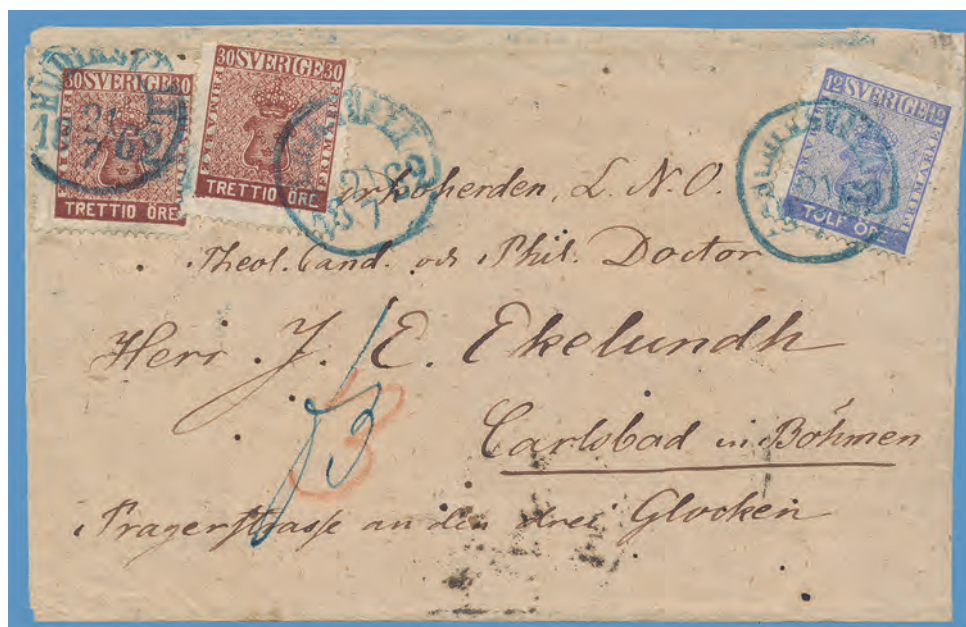 30 SVERIGE 30
FRIMÄRKE
TRETTIO ÖRE
30 SVERIGE 30
FRIMÄRKE
TRETTIO ÖRE
12 SVERIGE 12
FRIMÄRKE
TOLF ÖRE
21
7
L. N. O.
Theol. Cand. och Phil. Doctor
Herr J. E. Ekelundh
Carlsbad in Böhmen
Pragerstrasse an den drei Glocken